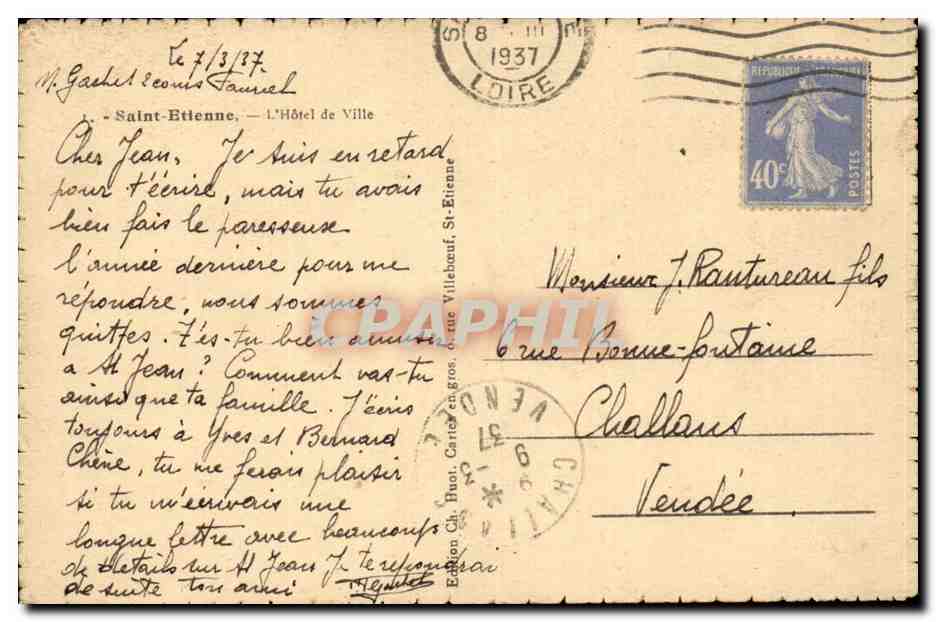 Le 7/3/37
M. Gachet 2 cours Fauriel
- Saint-Etienne. — L'Hôtel de Ville
Cher Jean, Je suis en retard
pour t'écrire, mais tu avais
bien fais le paresseuse
l'année dernière pour me
répondre, nous sommes
quittes. T'es-tu bien amuser
a St Jean? Comment vas-tu
ainsi que ta famille. J'écris
toujours à Yves et Bernard
Chêne, tu me ferais plaisir
si tu m'écrivais une
longue lettre avec beaucoups
de details sur St Jean Je te repondrai
de suite ton ami
MGachet
Edition Ch. Huot. Cartes en gros. 6. rue Villebœuf, St-Etienne
8 III
1937
LOIRE
REPUBLIQUE FRANCAISE
40c
POSTES
Monsieur J. Rantureau fils
6 rue Bonne-fontaine
Challans
Vendée
CHALLANS
VENDEE
9 - 3
37
CPAPHIL